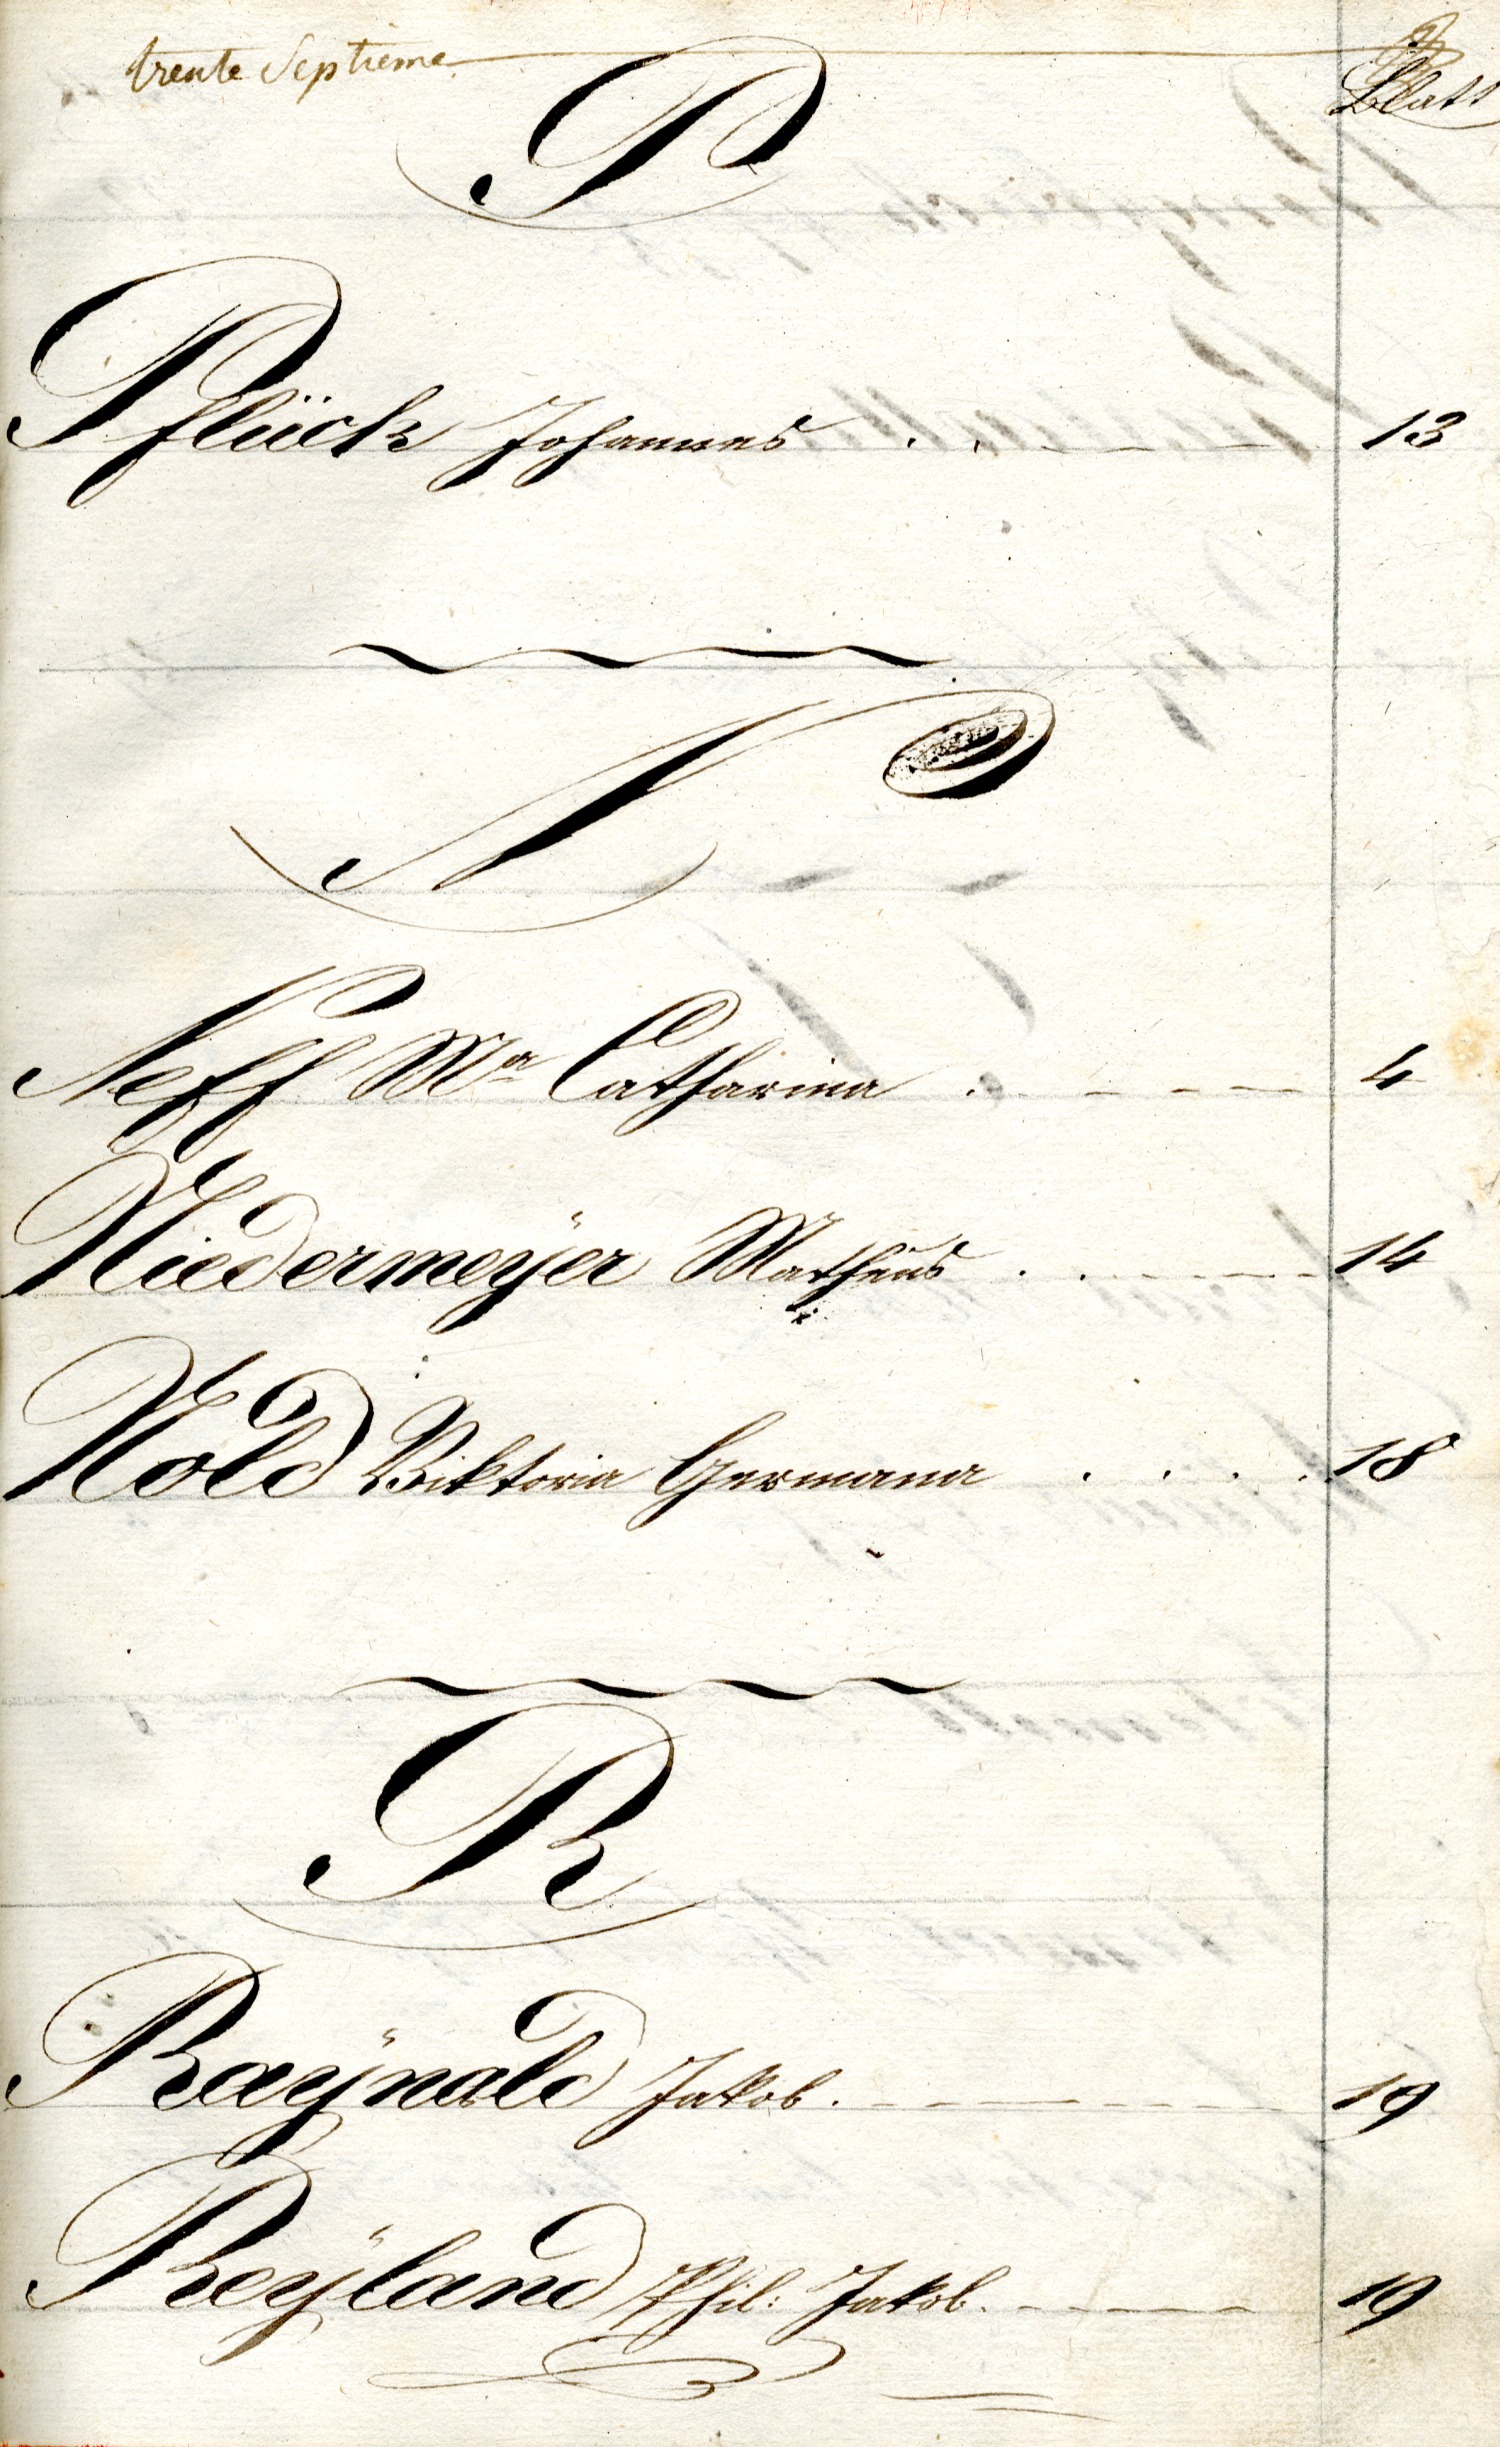 trente Septieme
Blatt
P
Pflück Johannes 13
N
Neff Mª Catharina 4
Niedermeÿer Matheus 14
Nold Viktoria Germana 18
R
Raÿnald Jakob 19
Reÿland Phil: Jakob 19